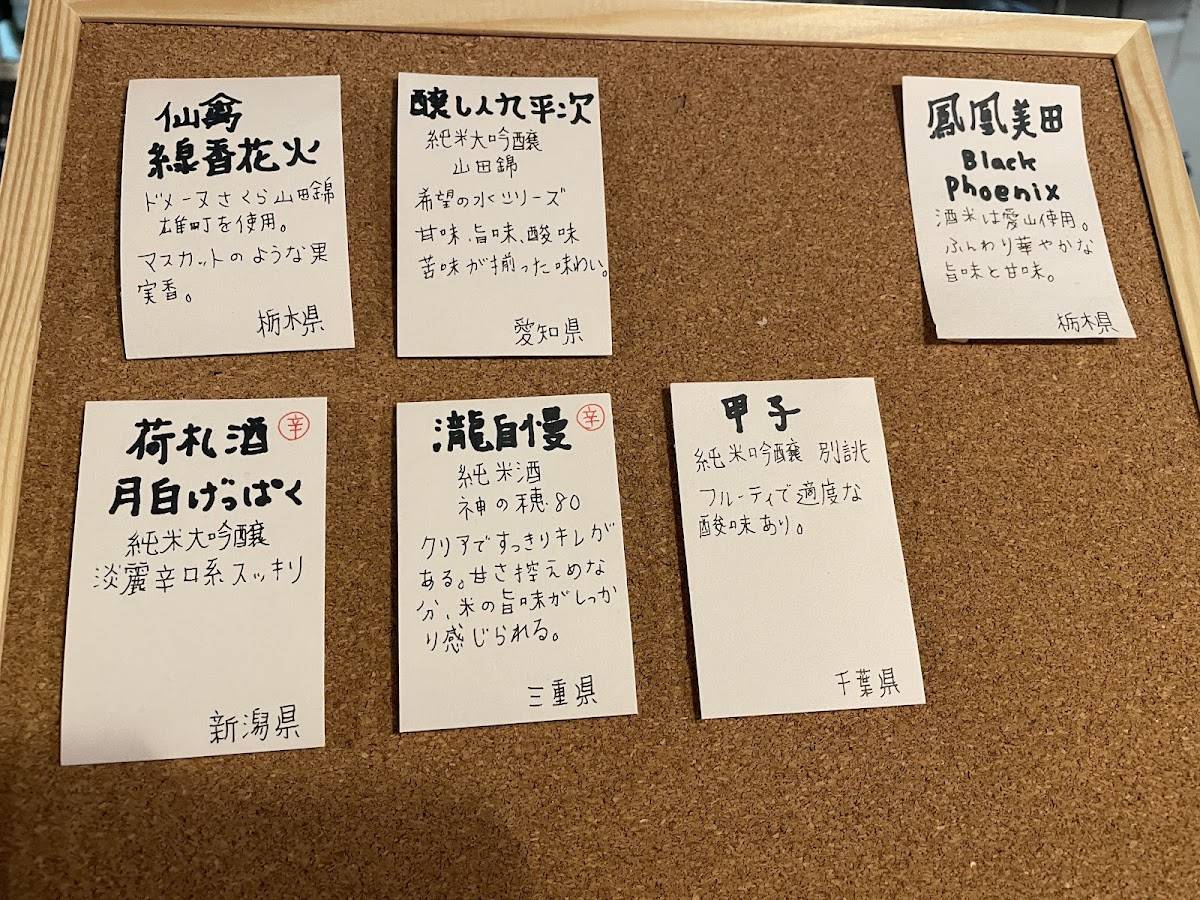 仙禽
線香花火
ドメーヌさくら山田錦
雄町を使用。
マスカットのような果
実香。
栃木県
醸し人九平次
純米大吟醸
山田錦
希望の水シリーズ
甘味、旨味、酸味
苦味が揃った味わい。
愛知県
鳳凰美田
Black
Phoenix
酒米は愛山使用。
ふんわり華やかな
旨味と甘味。
栃木県
荷札酒 辛
月白げっぱく
純米大吟醸
淡麗辛口系スッキリ
新潟県
瀧自慢 辛
純米酒
神の穂80
クリアですっきりキレが
ある。甘さ控えめな
分、米の旨味がしっか
り感じられる。
三重県
甲子
純米吟醸 別誂
フルーティで適度な
酸味あり。
千葉県